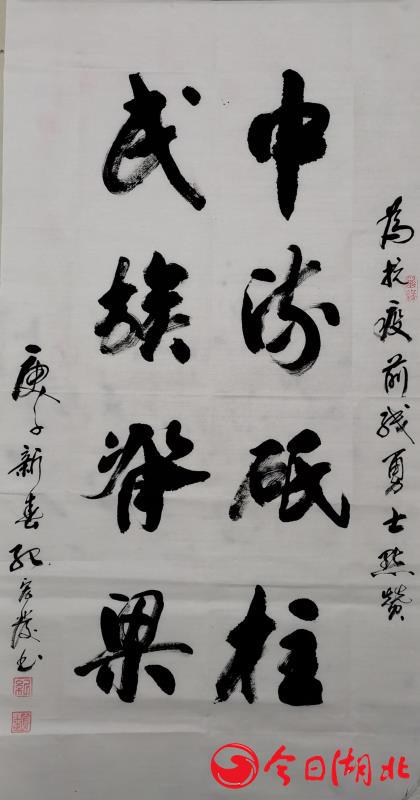 為抗疫前线勇士点赞
中流砥柱
民族脊梁
庚子新春
今日湖北